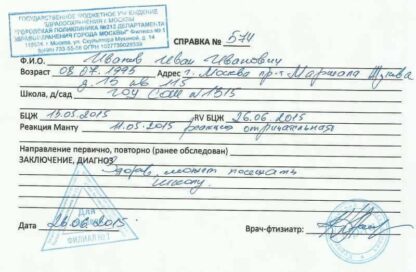 ГОСУДАРСТВЕННОЕ БЮДЖЕТНОЕ УЧРЕЖДЕНИЕ
ЗДРАВООХРАНЕНИЯ Г. МОСКВЫ
"ГОРОДСКАЯ ПОЛИКЛИНИКА №212 ДЕПАРТАМЕНТА
ЗДРАВООХРАНЕНИЯ ГОРОДА МОСКВЫ" Филиал № 1
г. Москва, ул.
СПРАВКА № 574
Ф.И.О. Иванов Иван Иванович
Возраст 08.07.1995 Адрес г. Москва пр-т. Маршала Жукова
д. 15 кв 115
Школа, д/сад ГОУ СОШ №1515
БЦЖ 15.05.2015 RV БЦЖ 26.06 2015
Реакция Манту 11.05.2015 реакция отрицательная
Направление первично, повторно (ранее обследован)
ЗАКЛЮЧЕНИЕ, ДИАГНОЗ
Здоров, может посещать
школу.
Для
ФИЛИАЛ №1
Дата 26.06 2015
Врач-фтизиатр: